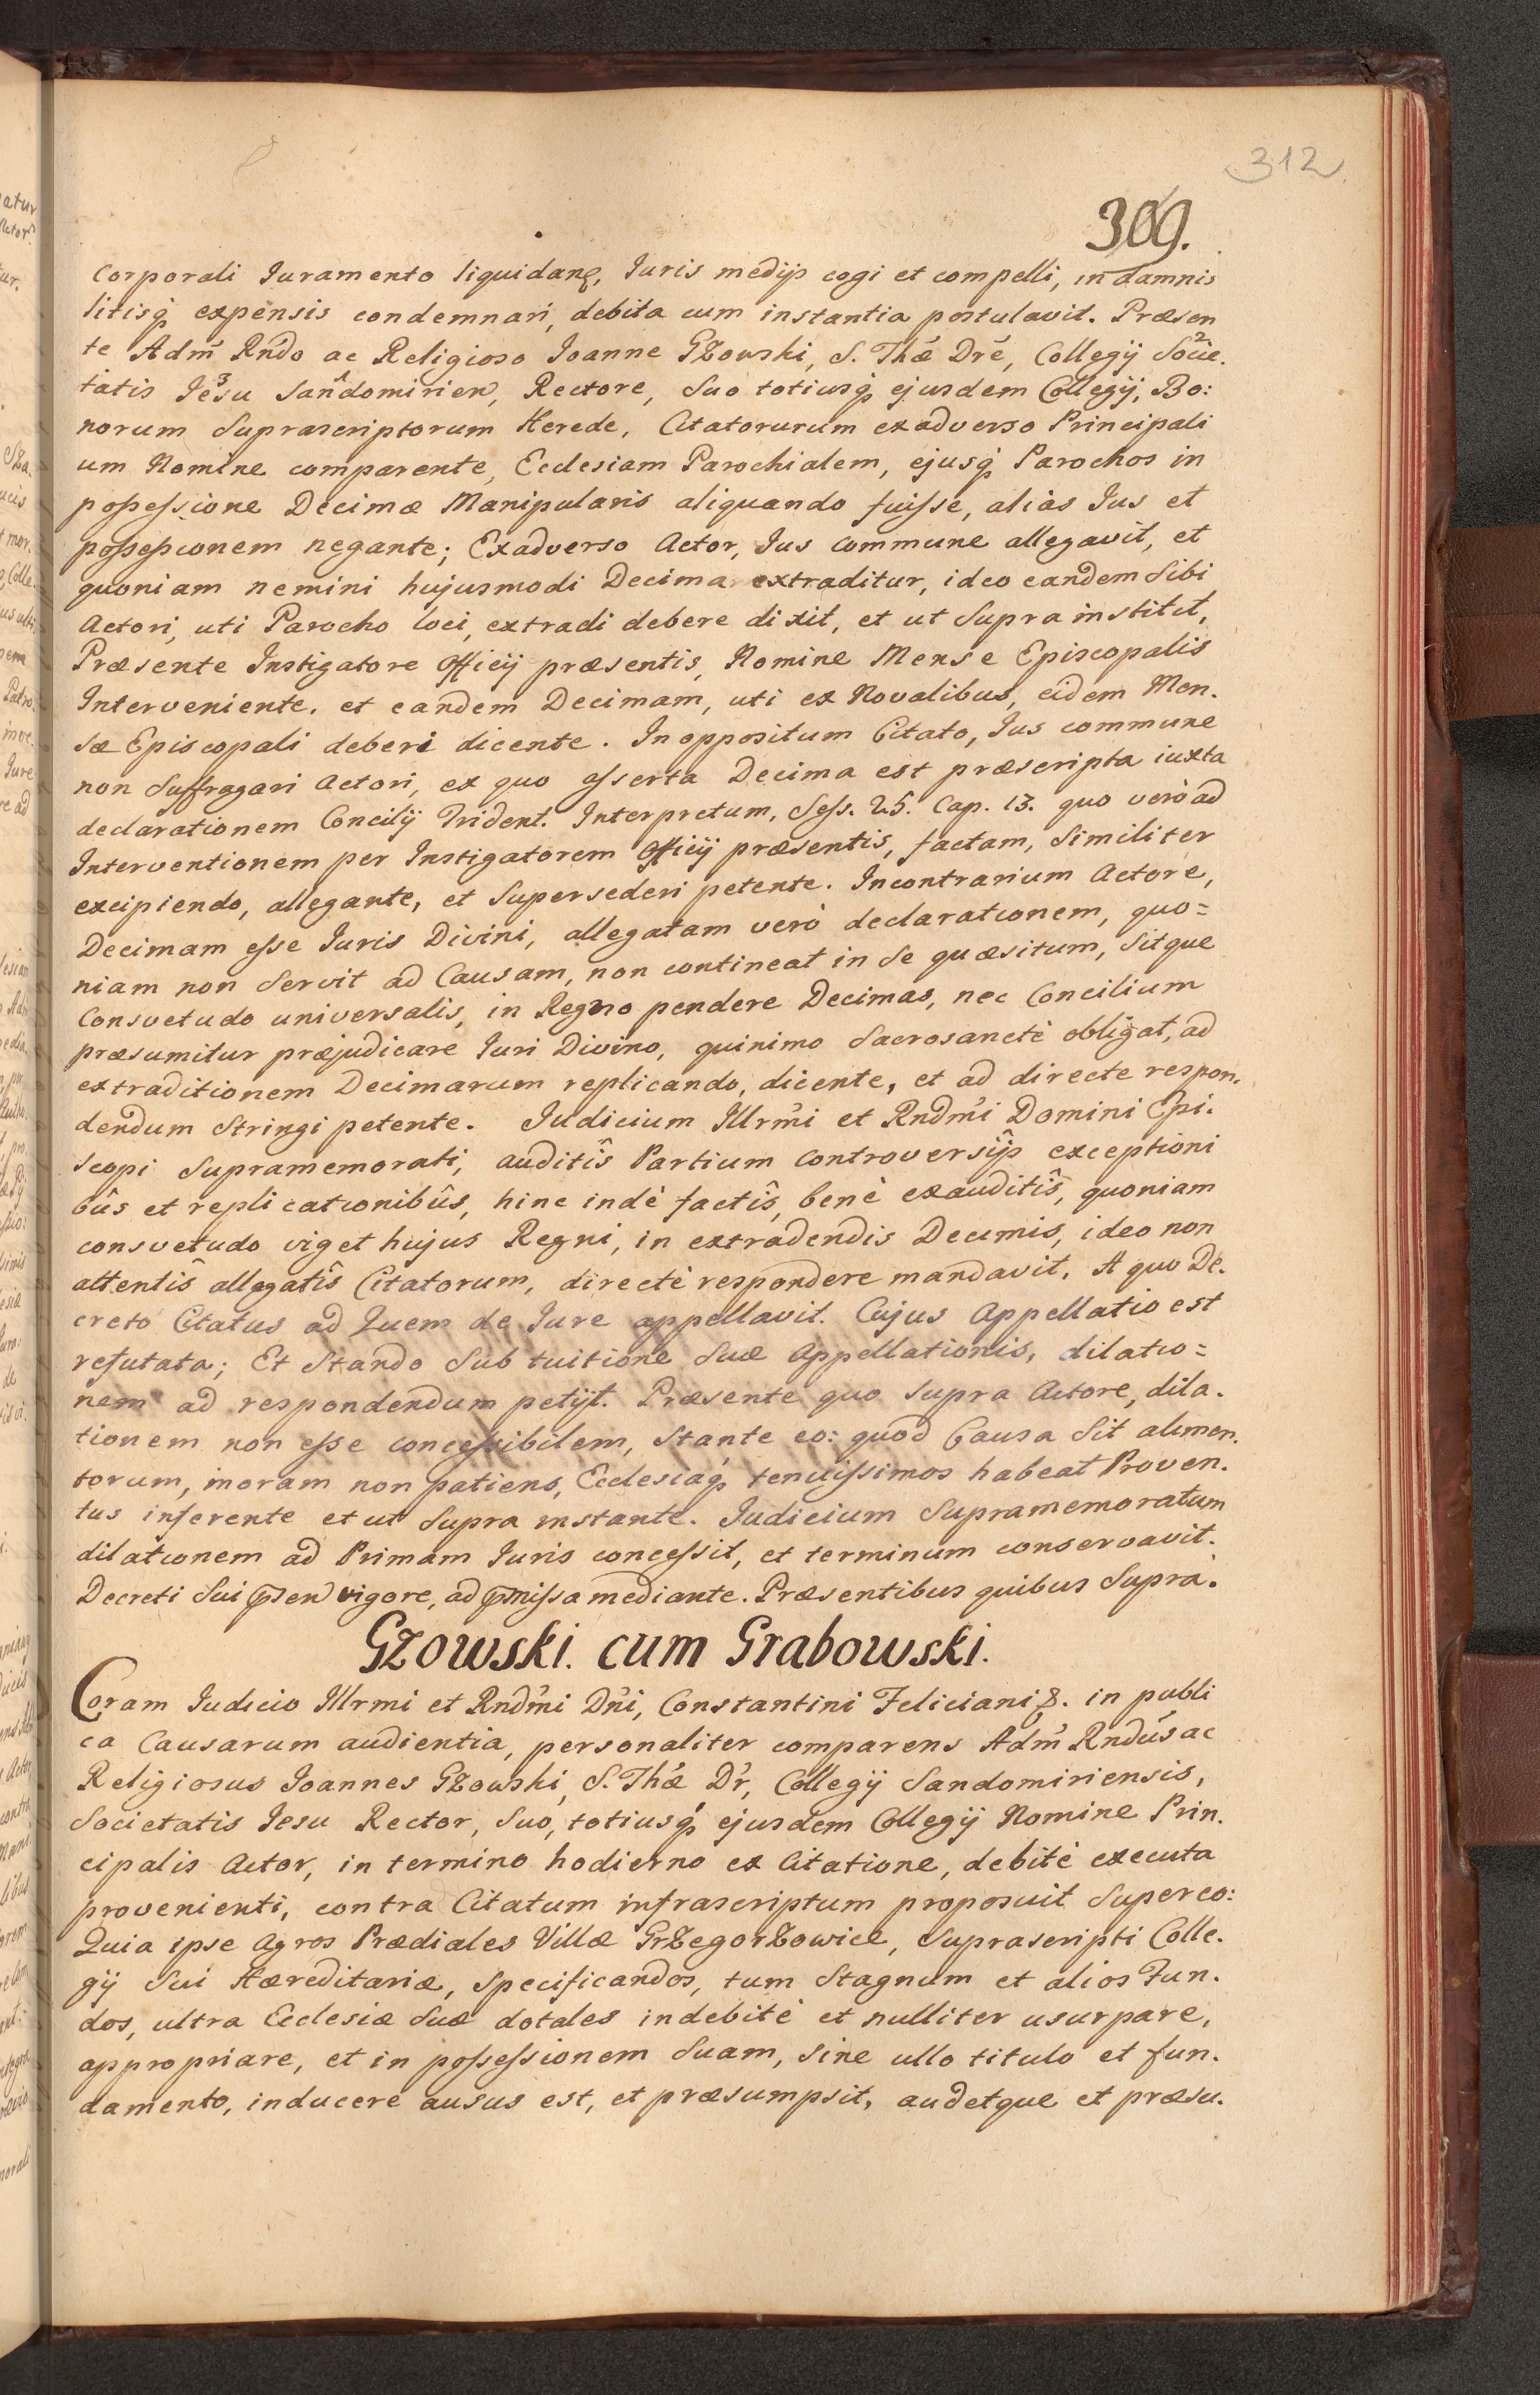 312
309.
corporali Iuramento liquidanḍ, Iuris medijs cogi et compelli, in damnis
litisq́ expensis condemnari, debita cum instantia postulavit. Præsen
te Adḿ Rńdo ac Religioso Ioanne Gzowski, S. Thæ Dre, Collegij Socie²
tatis Iesu³ Sandomirien¹, Rectore, Suo totiusq́ ejusdem Collegij, Bo:
norum Suprascriptorum Herede, Citatorurum exadverso Principali
um Nomine comparente, Ecclesiam Parochialem, ejusq́ Parochos in
possessione Decimæ Manipularis aliquando fuisse, alias Ius et
possessionem negante; Exadverso Actor, Ius commune allegavit, et
quoniam nemini hujusmodi Decima extraditur, ideo eandem Sibi
Actori, uti Parocho loci, extradi debere dixit, et ut Supra institit,
Præsente Instigatore Officij præsentis, Nomine Mensæ Episcopalis
Interveniente, et eandem Decimam, uti ex Novalibus, eidem Men.
sæ Episcopali deberi dicente. In oppositum Citato, Ius commune
non Suffragari Actori, ex quo asserta Decima est præscripta iuxta
declarationem Concilij Trident. Interpretum, Sess. 25. Cap. 13. quo verò ad
Interventionem per Instigatorem Officij præsentis, factam, Similiter
excipiendo, allegante, et Supersederi petente. Incontrarium Actore,
Decimam esse Iuris Divini, allegatam verò declarationem, quo=
niam non Servit ad Causam, non contineat in Se quæsitum, Sitque
Consvetudo universalis, in Regno pendere Decimas, nec Concilium
præsumitur præjudicare Iuri Divino, quinimo Sacrosanctè obligat, ad
extraditionem Decimarum replicando, dicente, et ad directe respon.
dendum Stringi petente. Iudicium Illrmi et Rndmi Domini Epi.
scopi Supramemorati, auditîs Partium controversijs exceptioni
bûs et replicationibûs, hinc indè factîs, benè exauditîs, quoniam
consvetudo viget hujus Regni, in extradendis Decimis, ideo non
attentîs allegatîs Citatorum, directè respondere mandavit. A quo De.
creto Citatus ad Quem de Iure appellavit. Cujus Appellatio est
refutata; Et Stando Sub tuitione Suæ Appellationis, dilatio=
nem ad respondendum petijt. Præsente quo Supra Actore, dila.
tionem non esse concessibilem, Stante eo: quod Causa Sit alimen.
torum, moram non patiens, Ecclesiaq́ tenuissimos habeat Proven.
tus inferente et ut Supra instante. Iudicium Supramemoratum
dilationem ad Primam Iuris concessit, et terminum conservavit.
Decreti Sui p̃sen vigore, ad p̃missa mediante. Præsentibus quibus Supra.
Gzowski. cum Grabowski.
Coram Iudicio Illrmi et Rndmi Dńi, Constantini Feliciani &. in publi
ca Causarum audientia, personaliter comparens Adḿ Rndús ac
Religiosus Ioannes Gzowski, S. Thæ Dr, Collegij Sandomiriensis,
Societatis Iesu Rector, Suo, totiusq́ ejusdem Collegij Nomine Prin.
cipalis Actor, in termino hodierno ex Citatione, debitè executa
provenienti, contra Citatum infrascriptum proposuit Super eo:
Quia ipse Agros Prædiales Villæ Grzegorzowice, Suprascripti Colle.
gij Sui Hæreditariæ, Specificandos, tum Stagnum et alios Fun.
dos, ultra Ecclesiæ Suæ dotales indebitè et nulliter usurpare,
appropriare, et in possessionem Suam, Sine ullo titulo et fun.
damento, inducere ausus est, et præsumpsit, audetque et præsu.